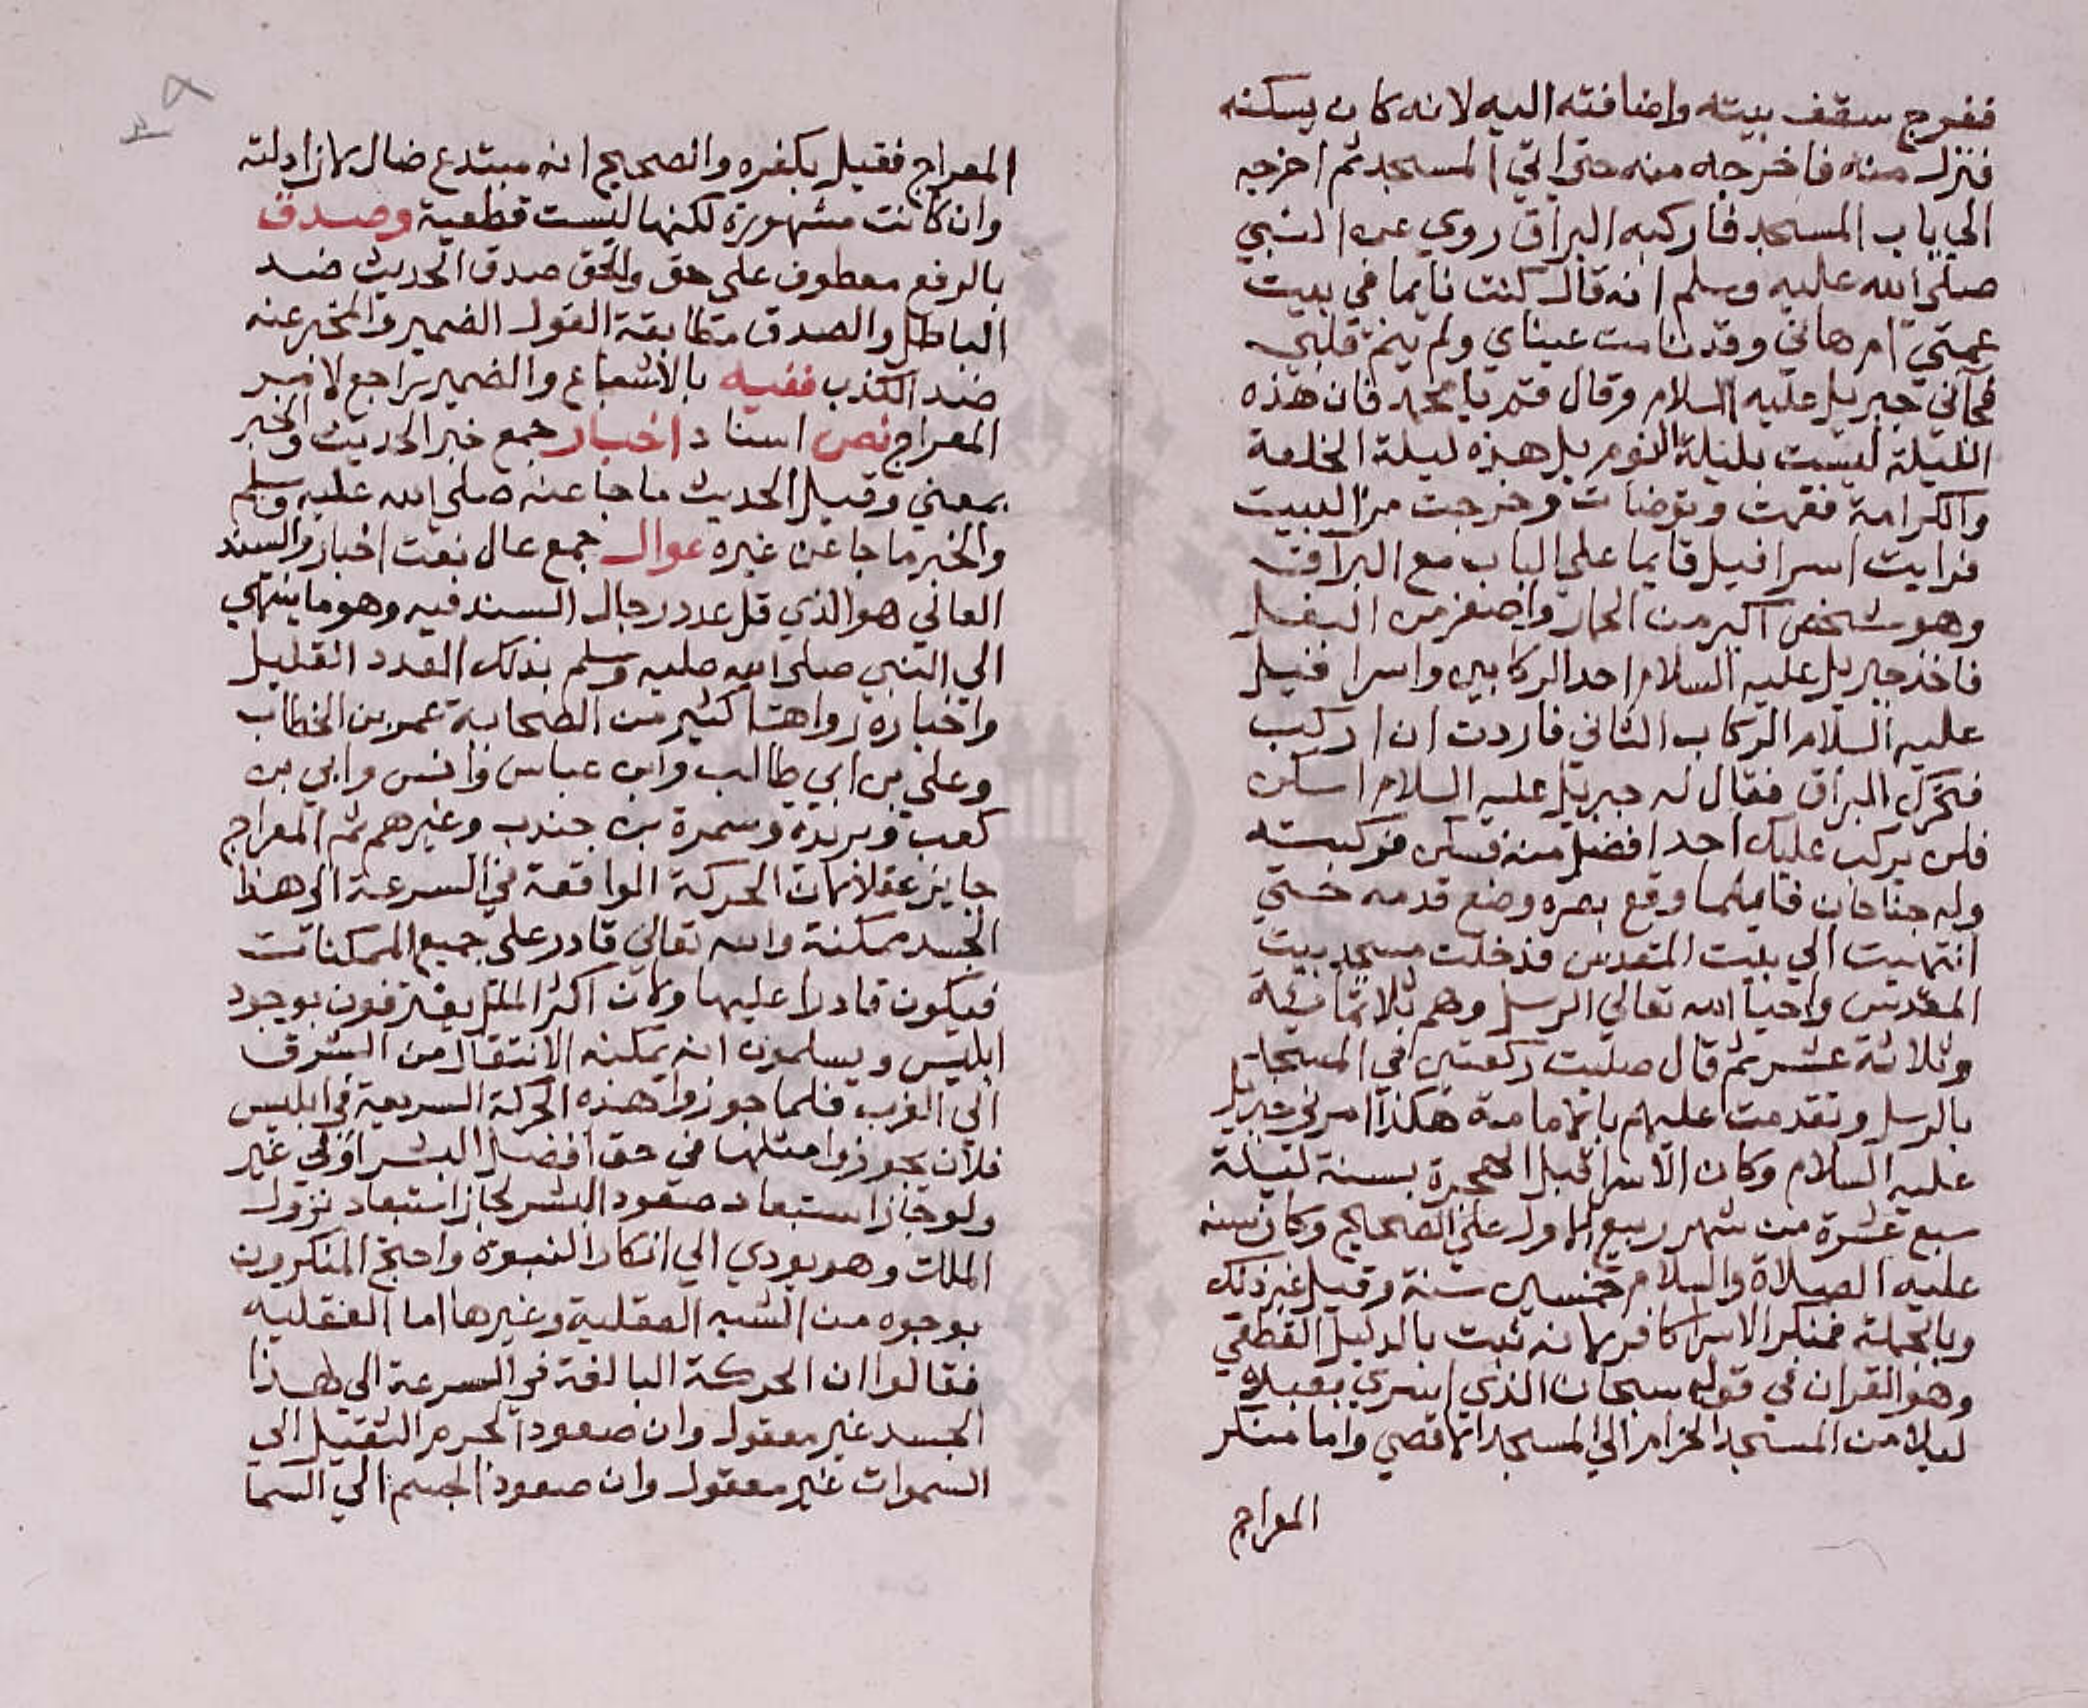 ففرج سقف بيته واضافته اليه لانه كان يسكنه
فنزل منه فاخرجه منه حتي اتي المسجد ثم اخرجه
الي باب المسجد فاركبه البراق روي عن النبي
صلي الله عليه وسلم انه قال كنت نايما في بيت
عمتي ام هاني وقد نامت عيناي ولم ينم قلبي
فجاني جبريل عليه السلام وقال قم يا محمد فان هذه
الليلة ليست بليلة النوم بل هذه ليلة الخلعة
والكرامة فقمت وتوضات وخرجت من البيت
فرايت اسرافيل قايما علي الباب مع البراق
وهو شخص اكبر من الحمار واصغر من البغل
فاخذ جبريل عليه السلام احد الركابين واسرافيل
عليه السلام الركاب الثاني فاردت ان اركب
فتحرك البراق فقال له جبريل عليه السلام اسكن
فلن يركب عليك احد افضل منه فسكن فركبته
وله جناحان فاينما وقع بصره وضع قدمه حتي
انتهيت الي بيت المقدس فدخلت مسجد بيت
المقدس واحيا الله تعالي الرسل وهم ثلاثماية
وثلاثة عشر ثم قال صليت ركعتين في المسجد
بالرسل وتقدمت عليهم بالامامة هكذا امرني جبريل
عليه السلام وكان الاسرا قبل الهجرة بسنة ليلة
سبع عشرة من شهر ربيع الاول علي الصحيح وكان سنه
عليه الصلاة والسلام خمسين سنة وقيل غير ذلك
وبالجملة فمنكر الاسرا كافر لانه ثبت بالدليل القطعي
وهو القران في قوله سبحان الذي اسري بعبده
ليلا من المسجد الحرام الي المسجد الاقصي واما منكر
المعراج
المعراج فقيل بكفره والصحيح انه مبتدع ضال لان ادلته
وان كانت مشهورة لكنها ليست قطعية وصدق
بالرفع معطوف علي حق والحق صدق الحديث ضد
الباطل والصدق مطابقة القول الضمير والمخبر عنه
ضد الكذب ففيه بالاشباع والضمير راجع لامر
المعراج نص اسناد اخبار جمع خبر الحديث والخبر
بمعني وقيل الحديث ما جا عنه صلي الله عليه وسلم
والخبر ما جا عن غيره عوال جمع عال نعت اخبار والسند
العالي هو الذي قل عدد رجال السند فيه وهو ما ينتهي
الي النبي صلي الله عليه وسلم بذلك العدد القليل
واخباره رواها كثير من الصحابة عمر بن الخطاب
وعلي بن ابي طالب وابن عباس وانس وابي بن
كعب وبريدة وسمرة بن جندب وغيرهم ثم المعراج
جايز عقلا لان الحركة الواقعة في السرعة الي هذا
الجسد ممكنة والله تعالي قادر علي جميع الممكنات
فيكون قادرا عليها ولان اكثر الملل يعترفون بوجود
ابليس ويسلمون انه يمكنه الانتقال من الشرق
الي الغرب فلما جوزوا هذه الحركة السريعة في ابليس
فلان يجوزوا مثلها في حق افضل البشر اولي غير
ولو جاز استبعاد صعود البشر لجاز استبعاد نزول
الملك وهو يودي الي انكار النبوة واحتج المنكرون
بوجوه من الشبه العقلية وغيرها اما العقليه
فقالوا ان الحركة البالغة في السرعة الي هذا
الجسد غير معقول وان صعود الجرم الثقيل الي
السموات غير معقول وان صعود الجسم الي السما